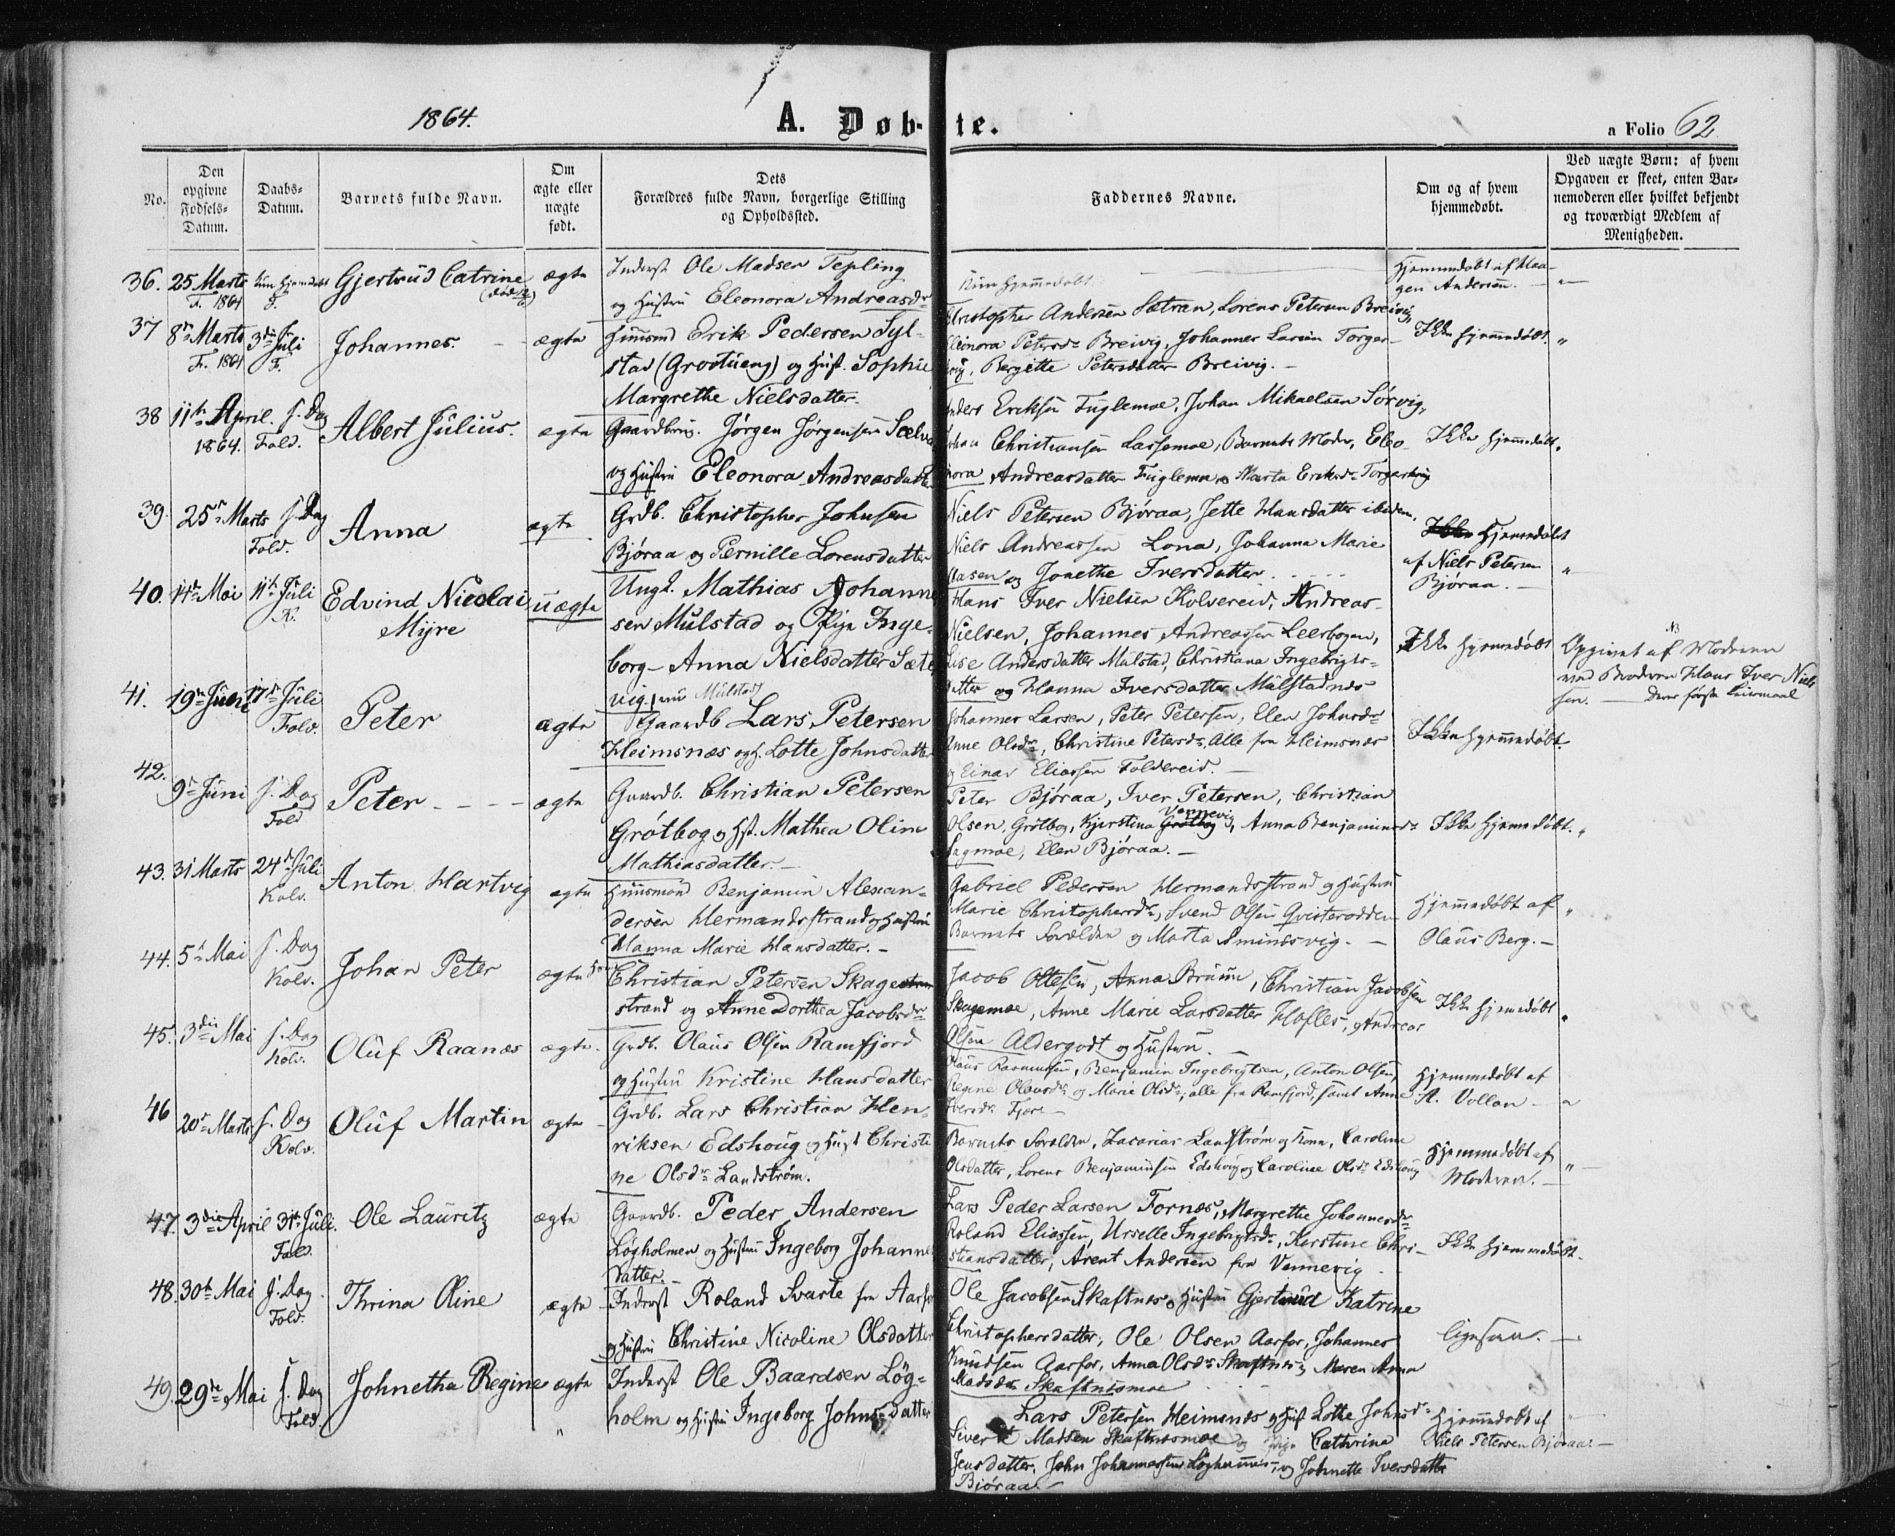 1864.
A. Døb-te.
a Folio 62
No.
Den opgivne Fødsels-Datum.
Daabs-Datum.
Barnets fulde Navn.
Om ægte eller uægte født.
Dets Forældres fulde Navn, borgerlige Stilling og Opholdsted.
Faddernes Navne.
Om og af hvem hjemmedøbt.
Ved uægte Børn: af hvem Opgaven er skeet, enten Barnemoderen eller hvilket bekjendt og troværdigt Medlem af Menigheden.
36. 25 Marts Gjertrud Catrine ægte Inderst Ole Madsen Tepling Kun hjemmedøbt Hjemmedøbt af Haa-
F. 1864 og Hustru Eleonora Andreasdr gen Andersen.
37 8de Marts 3die Juli Johannes. ægte Huusmd Erik Pedersen Syl- Christopher Andersen Sætran, Lorens Petersen Breivig,
Fr. 1864 F. stad (Grodtueng) og Hust. Sophie Eleonora Petersdr Breivig, Johannes Larsen Torger- Ikke hjemmedøbt.
Margrethe Nielsdatter. Bergitte Petersdatter Breivig.
38 11te April. s. Dag Albert Julius. ægte Gaardbrug. Jørgen Jørgensen Anders Eriksen Fuglemoe, Johan Mikaelsen Sørvig,
1864. Fold. og Hustru Eleonora Andreasdatter Johan Christiansen Lassemoe, Barnets Moder, Eleo- Ikke hjemmedøbt.
nora Andreasdatter Fuglemoe, Marta Eriksdr
39. 25de Marts s. Dag Anna ægte Grdb. Christopher Johnsen Niels Petersen Bjøraa, Jette Hansdatter ibidem,
Fold. Bjøraa og Pernille Lorensdatter Niels Andreassen Lona, Johanna Marie Hjemmedøbt
Aasen og Jonethe Iversdatter. af Niels Petersen
Bjøraa.
40. 14de Mai 11te Juli Edvind Nicolai uægte Ungk. Mathias Johanne- Hans Iver Nielsen Kolvereid, Andreas
K. Myre sen Mulstad og Pige Inge- Nielsen, Johannes Andreassen Leerbogen, Ikke hjemmedøbt Opgivet af Moderen
borg Anna Nielsdatter Sæter- Lise Andersdatter Mulstad, Christiana Ingebrigts- ved Broderen Hans Iver Niel-
vig, nu Mulstad datter og Hanna Iversdatter Mulstadnes sen. Deres første Leiermaal
41. 19de Juni 17de Juli Peter ægte Gaardb Lars Petersen Johannes Larsen, Peter Petersen, Elen Johnsdr
Fold. Heimsnæs og H. Lotte Johnsdatter Anne Olsdr, Christine Petersdr Alle fra Heimsnæs Ikke hjemmedøbt.
og Einar Eliassen Foldereid.
42. 9de Juni s. Dag Peter ægte Gaardb. Christian Petersen Peter Bjøraa, Iver Petersen, Christian
Fold Grøtbog og Hst. Mathea Oline Olsen Grøtbog, Kjerstina Vennevig, Anna Benjaminsdr Ikke hjemmedøbt.
Mathiasdatter. Sagmoe, Elen Bjøraa.
43. 31 Marts 24de Juli Anton Hartvig ægte Huusmand Benjamin Alexan- Gabriel Pedersen Hermandsstrand og Hustru
Kolv. dersen Hermandsstrand og Hustru Marie Christophersdr, Svend Olsen Qvisterodden Hjemmedøbt af
Hanna Marie Hansdatter. Barnets Forældre og Marta Sminæsvig. Olaus Berg.
44. 5te Mai s. Dag Johan Peter ægte Christian Petersen Skage Jacob Ottesen, Anna Bruun, Christian Jacobsen
Kolv. strand og Anne Dorthea Jacobsdr Skagemoe, Anne Marie Larsdatter Hofles, Andreas Ikke hjemmedøbt
45. 3die Mai s. Dag Oluf Raanæs ægte. Grdb. Olaus Olsen Ramfjord Olsen Aldergodt og Hustru.
Kolv. og Hustru Kristine Hansdatter Olaus Rasmussen, Benjamin Ingebrigtsen, Anton Olsen, Hjemmedøbt af
Regine Olausdr og Marie Olsdr, alle fra Ramfjord, samt Anne A. Vollan
Iversdr Fjære
46 20de Marts s. Dag Oluf Martin ægte Grdb. Lars Christian Hen- Barnets Forældre, Zacarias Landstrøm og Kone, Caroline
Kolv. riksen Edshoug og Hust Christi- Olsdatter, Lorens Benjaminsen Edshoug og Caroline Olsdr Edshoug Hjemmedøbt af
ne Olsdr Landstrøm. Moderen.
47. 3die April 31te Juli. Ole Lauritz ægte Gaardb. Peder Andersen Lars Peder Larsen Fornæs, Margrethe Johannesdr
Fold. Løgholmen og Hustru Ingeborg Johanne- Roland Eliassen, Urselle Ingebrigtsdr, Kerstine Chri- Ikke hjemmedøbt.
datter. stiansdatter, Arent Andersen fra Vennevig
48. 30te Mai s. Dag Thrina Oline ægte Inderst Roland Svarte fra Aarfor Ole Jacobsen Skaftnes, Hustru Gjertrud Katrine
Fold. og Hustru Christine Nicoline Olsdatter Christophersdatter, Ole Olsen Aarfor, Johannes ligesaa.
Knudsen Aarfor, Anna Olsdr Skaftnes, Maren Anna
Madsdr Skaftnesmoe
49. 29de Mai s. Dag Johnetha Regine ægte Inderst Ole Baardsen Løg- Lars Petersen Heimsnes og Hust Lotte Johnsdr Hjemmedøbt af
Fold. holm og Hustru Ingeborg Johnsdatter Sivert Madsen Skaftnesmoe og Pige Cathrina Niels Petersen Bjøraa.
Jensdatter, John Johannessen Løgholmen, og Johnette Iversdatter
Bjøraa.